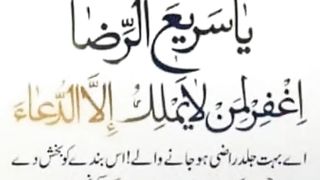 يَا سَرِيعَ الرِّضَا
اِغْفِرْ لِمَنْ لَا يَمْلِكُ إِلَّا الدُّعَاءَ
اے بہت جلد راضی ہو جانے والے! اس بندے کو بخش دے